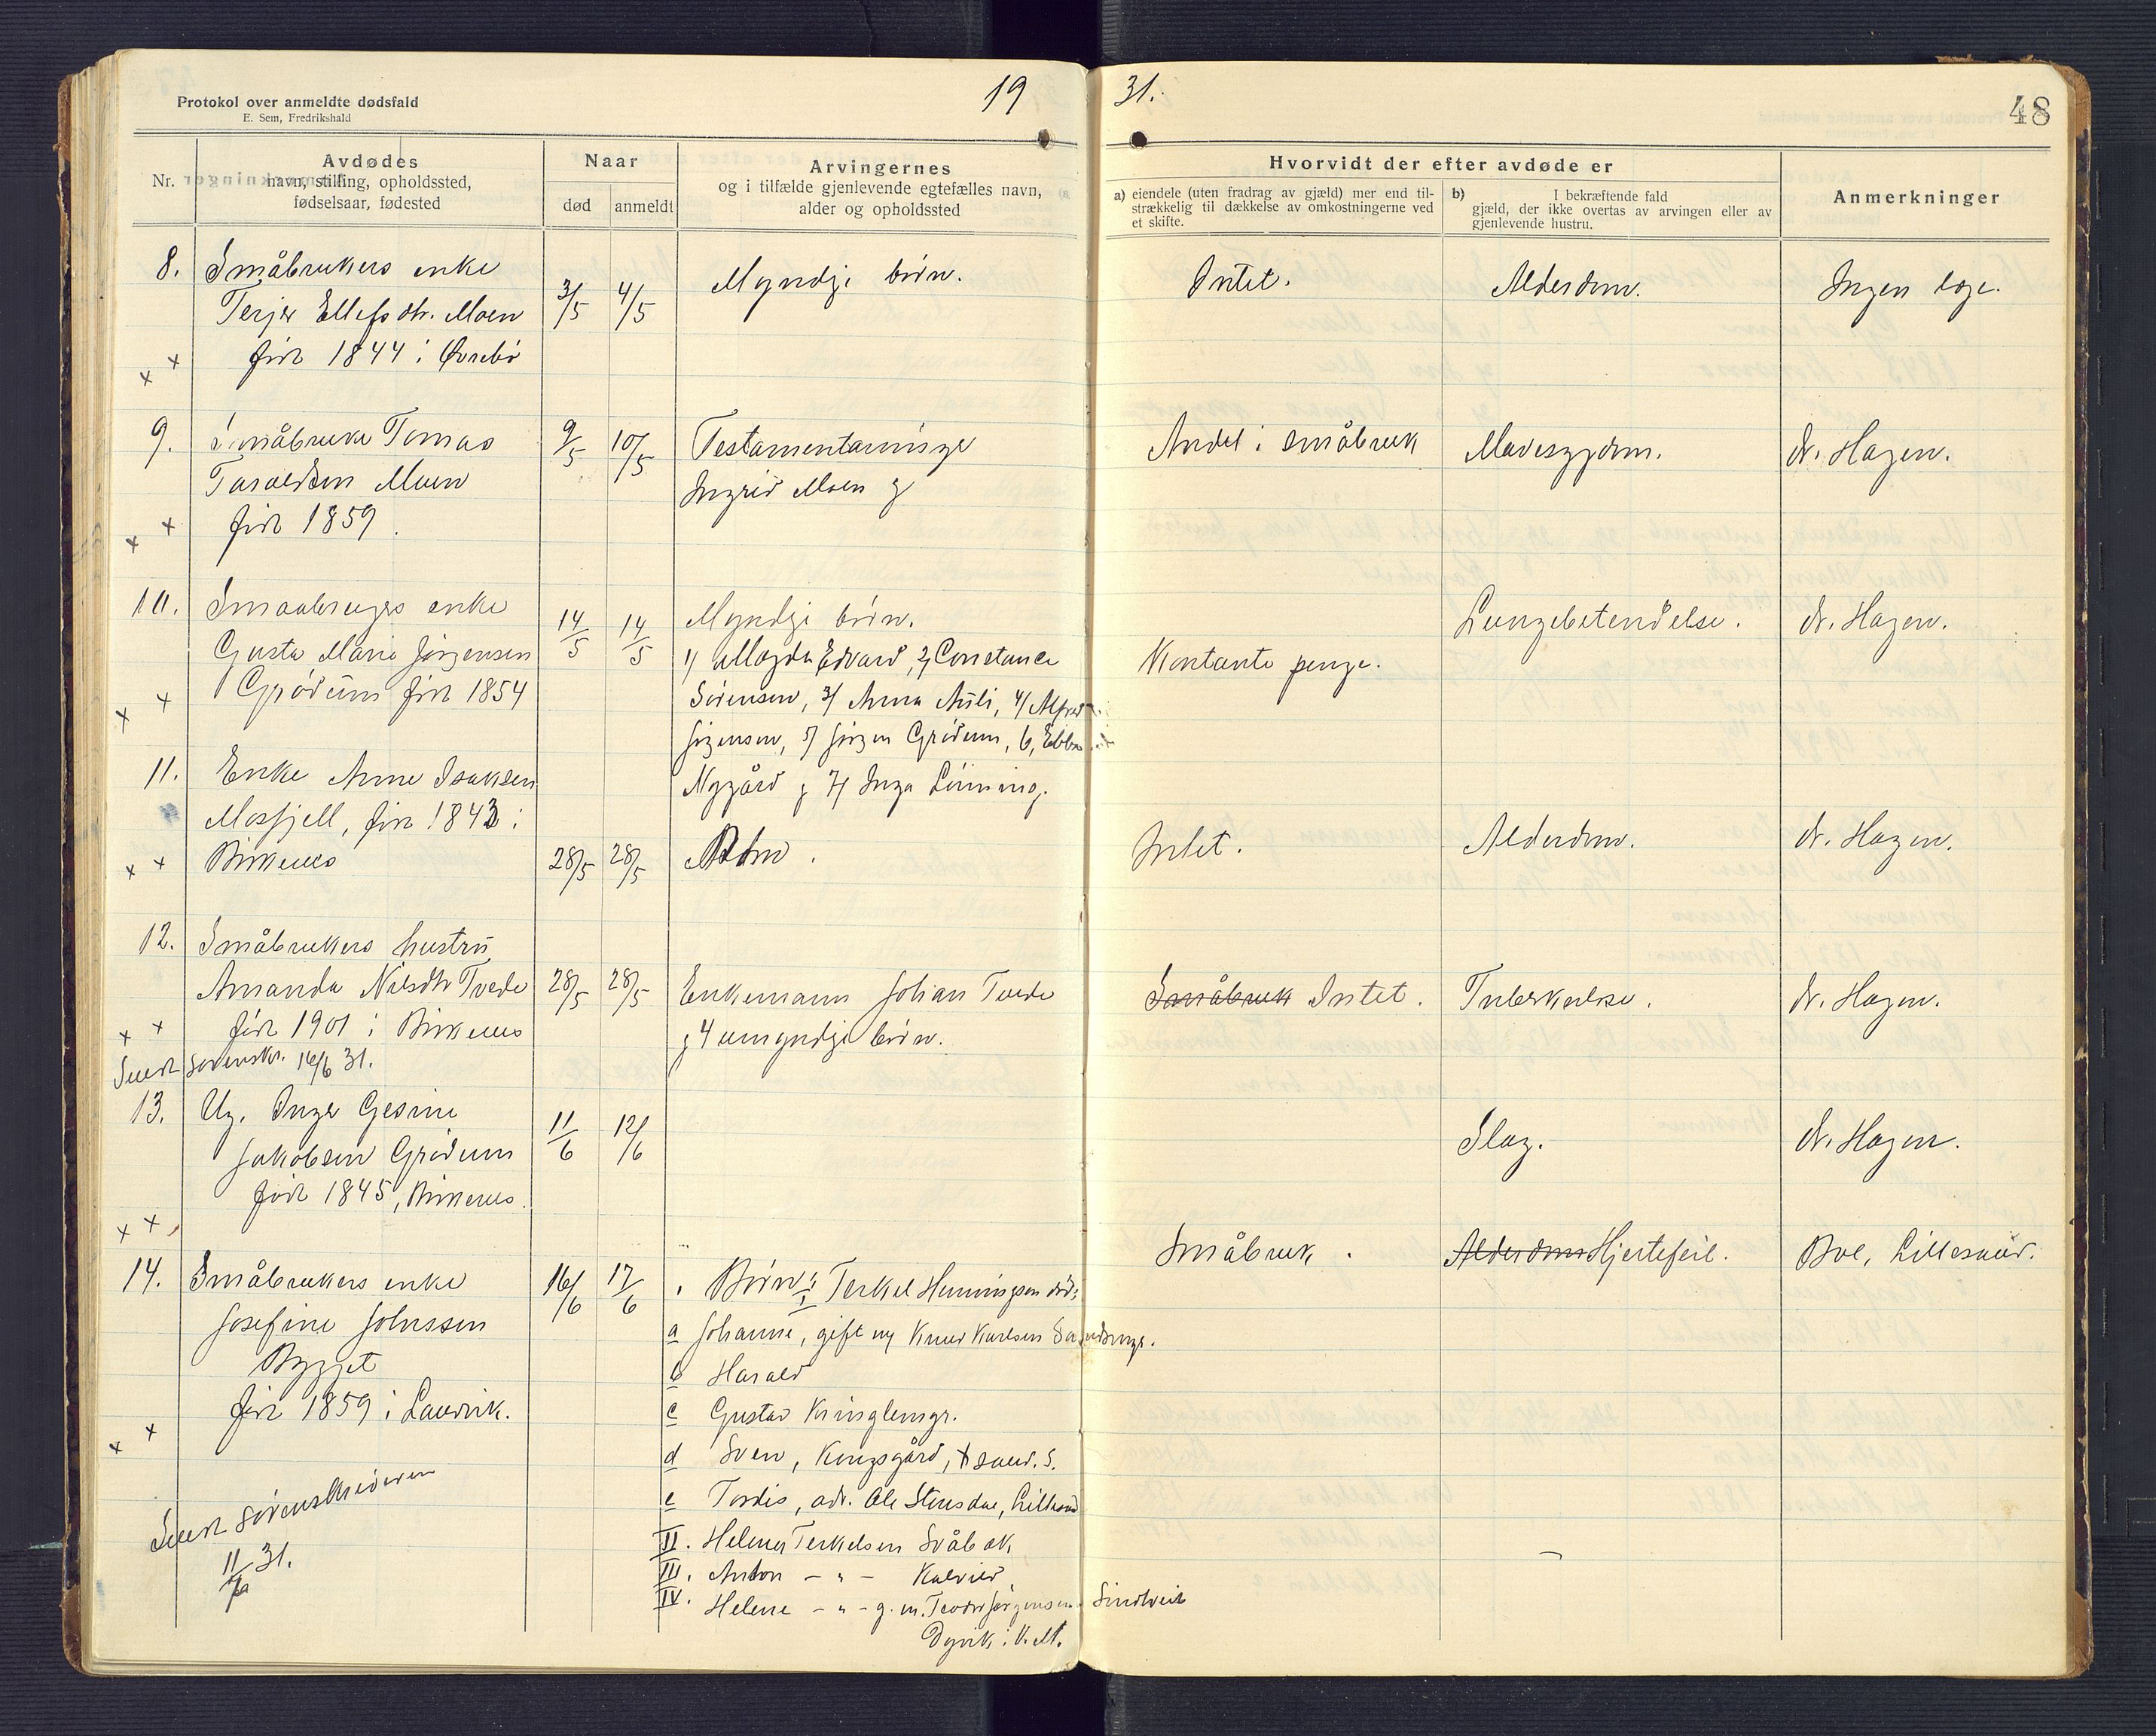 Protokol over anmeldte dødsfald
E. Sem, Fredrikshald
19
31.
48
Nr.
Avdødes
navn, stilling, opholdssted,
fødselsaar, fødested
Naar
død
anmeldt
Arvingernes
og i tilfælde gjenlevende egtefælles navn,
alder og opholdssted
Hvorvidt der efter avdøde er
a) eiendele (uten fradrag av gjæld) mer end til-
strækkelig til dækkelse av omkostningerne ved
et skifte.
b) I bekræftende fald
gjæld, der ikke overtas av arvingen eller av
gjenlevende hustru.
Anmerkninger
8. Småbrukers enke
Terjer Ellefsdtr. Moen
født 1844 i Øvrebø
3/5 4/5
Myndige børn.
Intet.
Alderdom.
Ingen læge.
9. Småbruker Tomas
Taraldsen Moen
født 1859.
9/5 10/5
Testamentarvinger
Ingrid Moen og
Andel i småbruk
Mavesygdom.
dr. Hagen.
10. Smaabrugers enke
Gusta Marie Jørgensen
Grødum født 1854
14/5 14/5
Myndige børn.
1/ Magda Edvard, 2/ Constance
Sørensen, 3/ Anna Åsli, 4/ Alfred
Jørgensen, 5/ Jørgen Grødum, 6, Ebba
Nygård og 7/ Inga Lønning.
Kontante penge.
Lungebetendelse.
dr. Hagen.
11. Enke Anne Isaksen
Mosfjell, født 1843 i
Birkenes
28/5 28/5
Børn.
Intet.
Alderdom.
dr. Hagen.
12. Småbrukers hustru
Amanda Nilsdtr Tvede
født 1901 i Birkenes
Sendt sorenskr. 16/6 31.
28/5 28/5
Enkemann Johan Tvede
og 4 umyndige børn.
Småbruk Intet.
Tuberkulose.
dr. Hagen.
13. Ug. Inger Gesine
Jakobsen Grødum
født 1845, Birkenes.
11/6 12/6
Slag.
dr. Hagen.
14. Småbrukers enke
Josefine Johnssen
Bygget
født 1859 i Landvik.
Sendt sorenskriveren
31.
16/6 17/6
Børn: I Terkel Henningsen død:
a Johanne, gift m Knud Karlsen
b Harald
c Gustav Kringlemyr.
d Sven, Kongsgård, Xsand. S.
e Tordis, adr. Ole Stensdal, Lillesand
II. Helmer Terkelsen Svåbek
III. Anton - " - Kalvild
IV. Helene - " - g. m. Teodor Jørgensen
Dyvik i V. M.
Småbruk.
Alderdom Hjertefeil.
Boe, Lillesand.